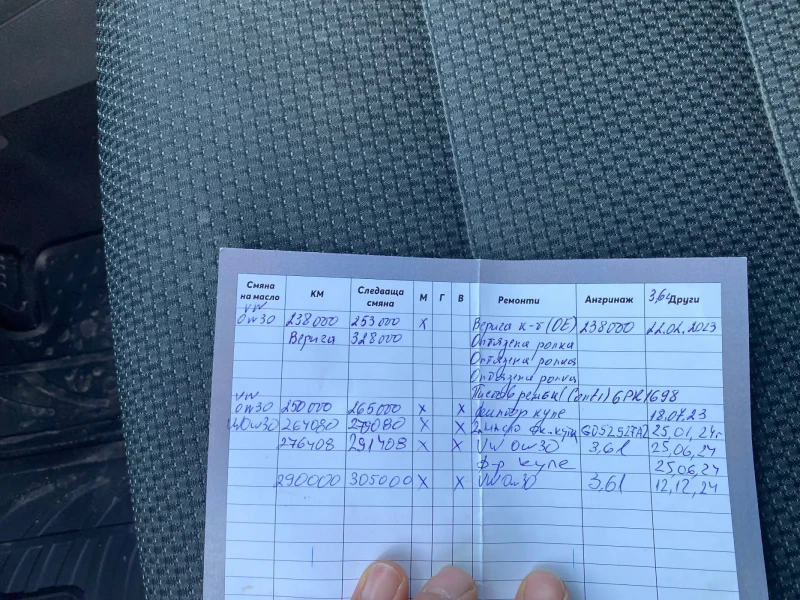 Смяна на масло КМ Следваща смяна М Г В Ремонти Ангринаж 3,6л Други
VW
0w30 238000 253000 X Верига к-т (OE) 238000 22.02.2023
Верига 328000 Обтяжна ролка
Обтяжна ролка
Обтяжна ролка
Пистов ремък (Conti) 6PK1698
VW
0w30 250000 265000 X X филтър купе 18.07.23
0w30 264080 279080 X X масло 25,01,24г
276408 291408 X X VW 0w30 3,6l 25,06,24
ф-р купе 25,06,24
290000 305000 X X VW 0w30 3,6l 12,12,24